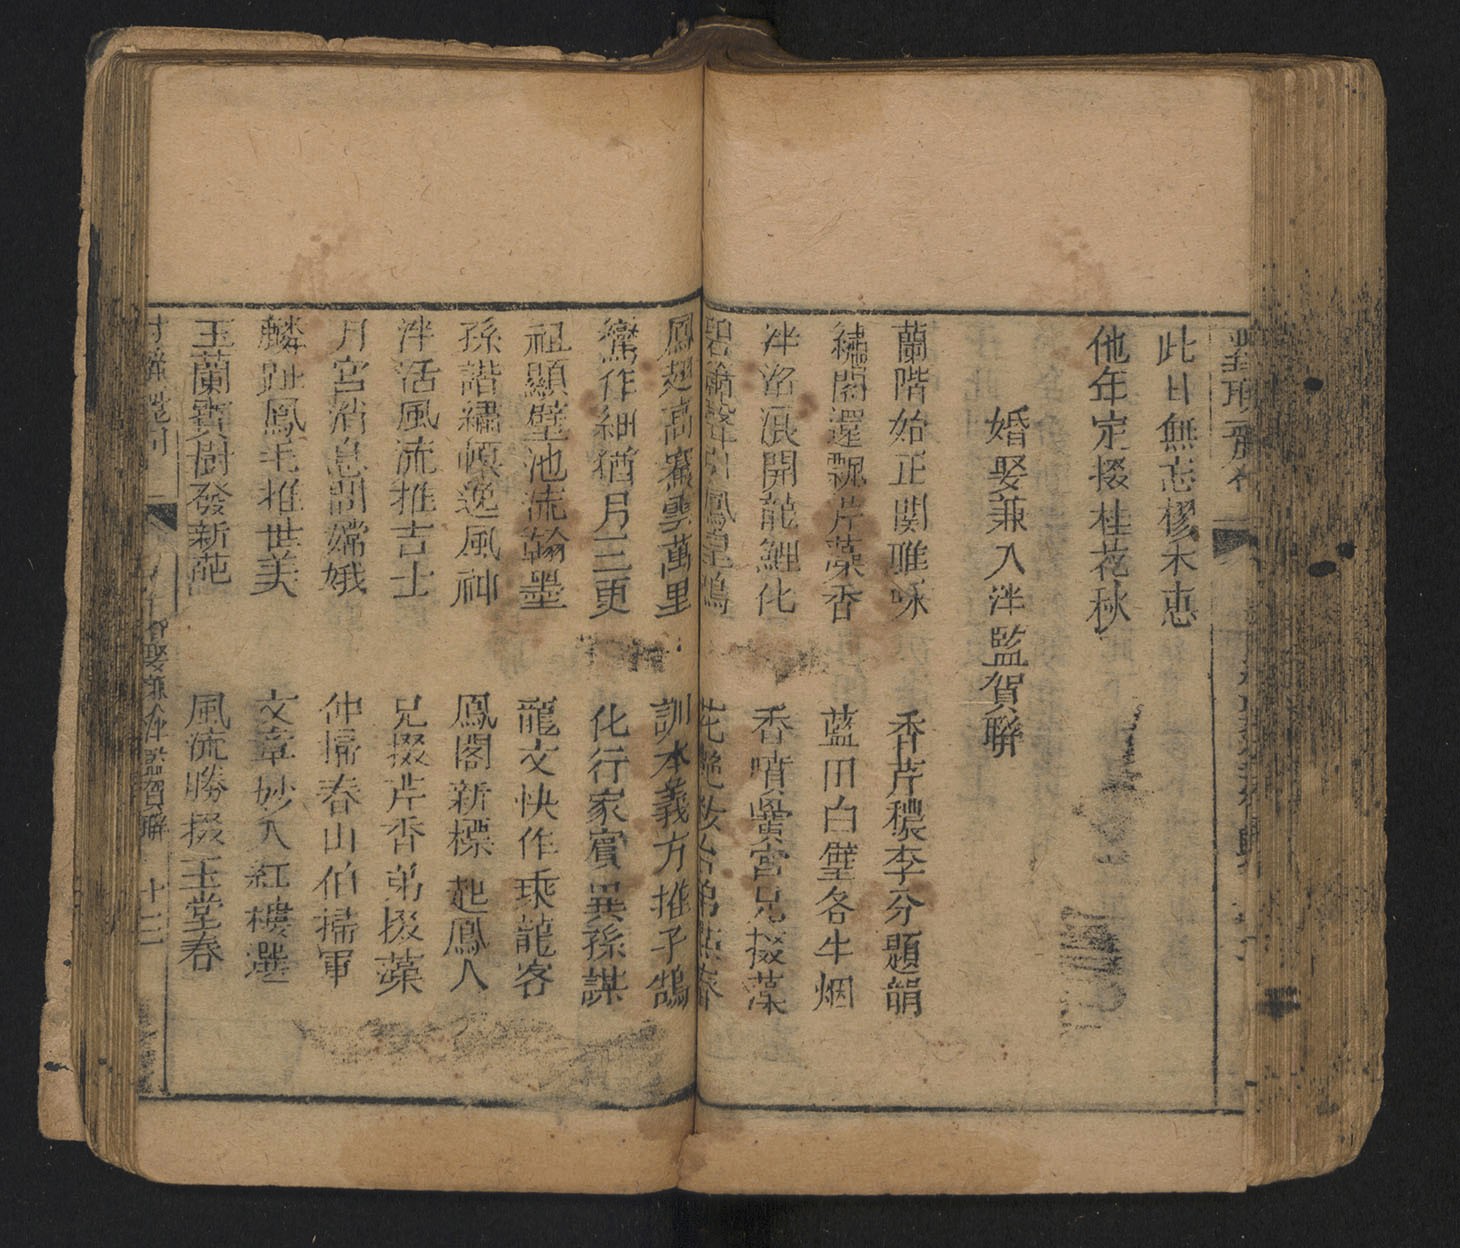 此日無忘樛木惠
他年定掇桂花秋
婚娶兼入泮監賀聯
蘭階始正関雎咏 香芹穠李分題韻
繡閣還飄芹藻香 藍田白璧各生烟
泮沼浪開龍鯉化 香噴黌宮兄掇藻
碧簫聲引鳳凰鳴
鳳起高騫雲萬里 訓本義方推子鵠
鸞作細猶月三更 化行家賓異孫謀
祖顯璧池流翰墨 龍文快作乘龍客
孫諧繡幙逸風神 鳳閣新標起鳳人
泮活風流推吉士 兄掇芹香弟掇藻
月宮消息問嫦娥 仲掃春山伯掃軍
麟趾鳳毛推世美 文章妙入紅樓選
玉蘭寶樹發新葩 風流勝掇玉堂春
婚娶兼入泮監賀聯 十二